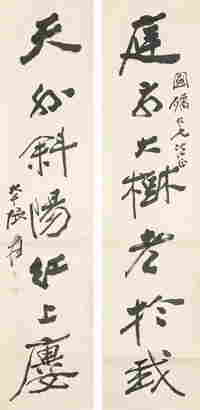 庭前大樹老於我
國儒仁兄法正
天外斜陽紅上廔
大千張爰